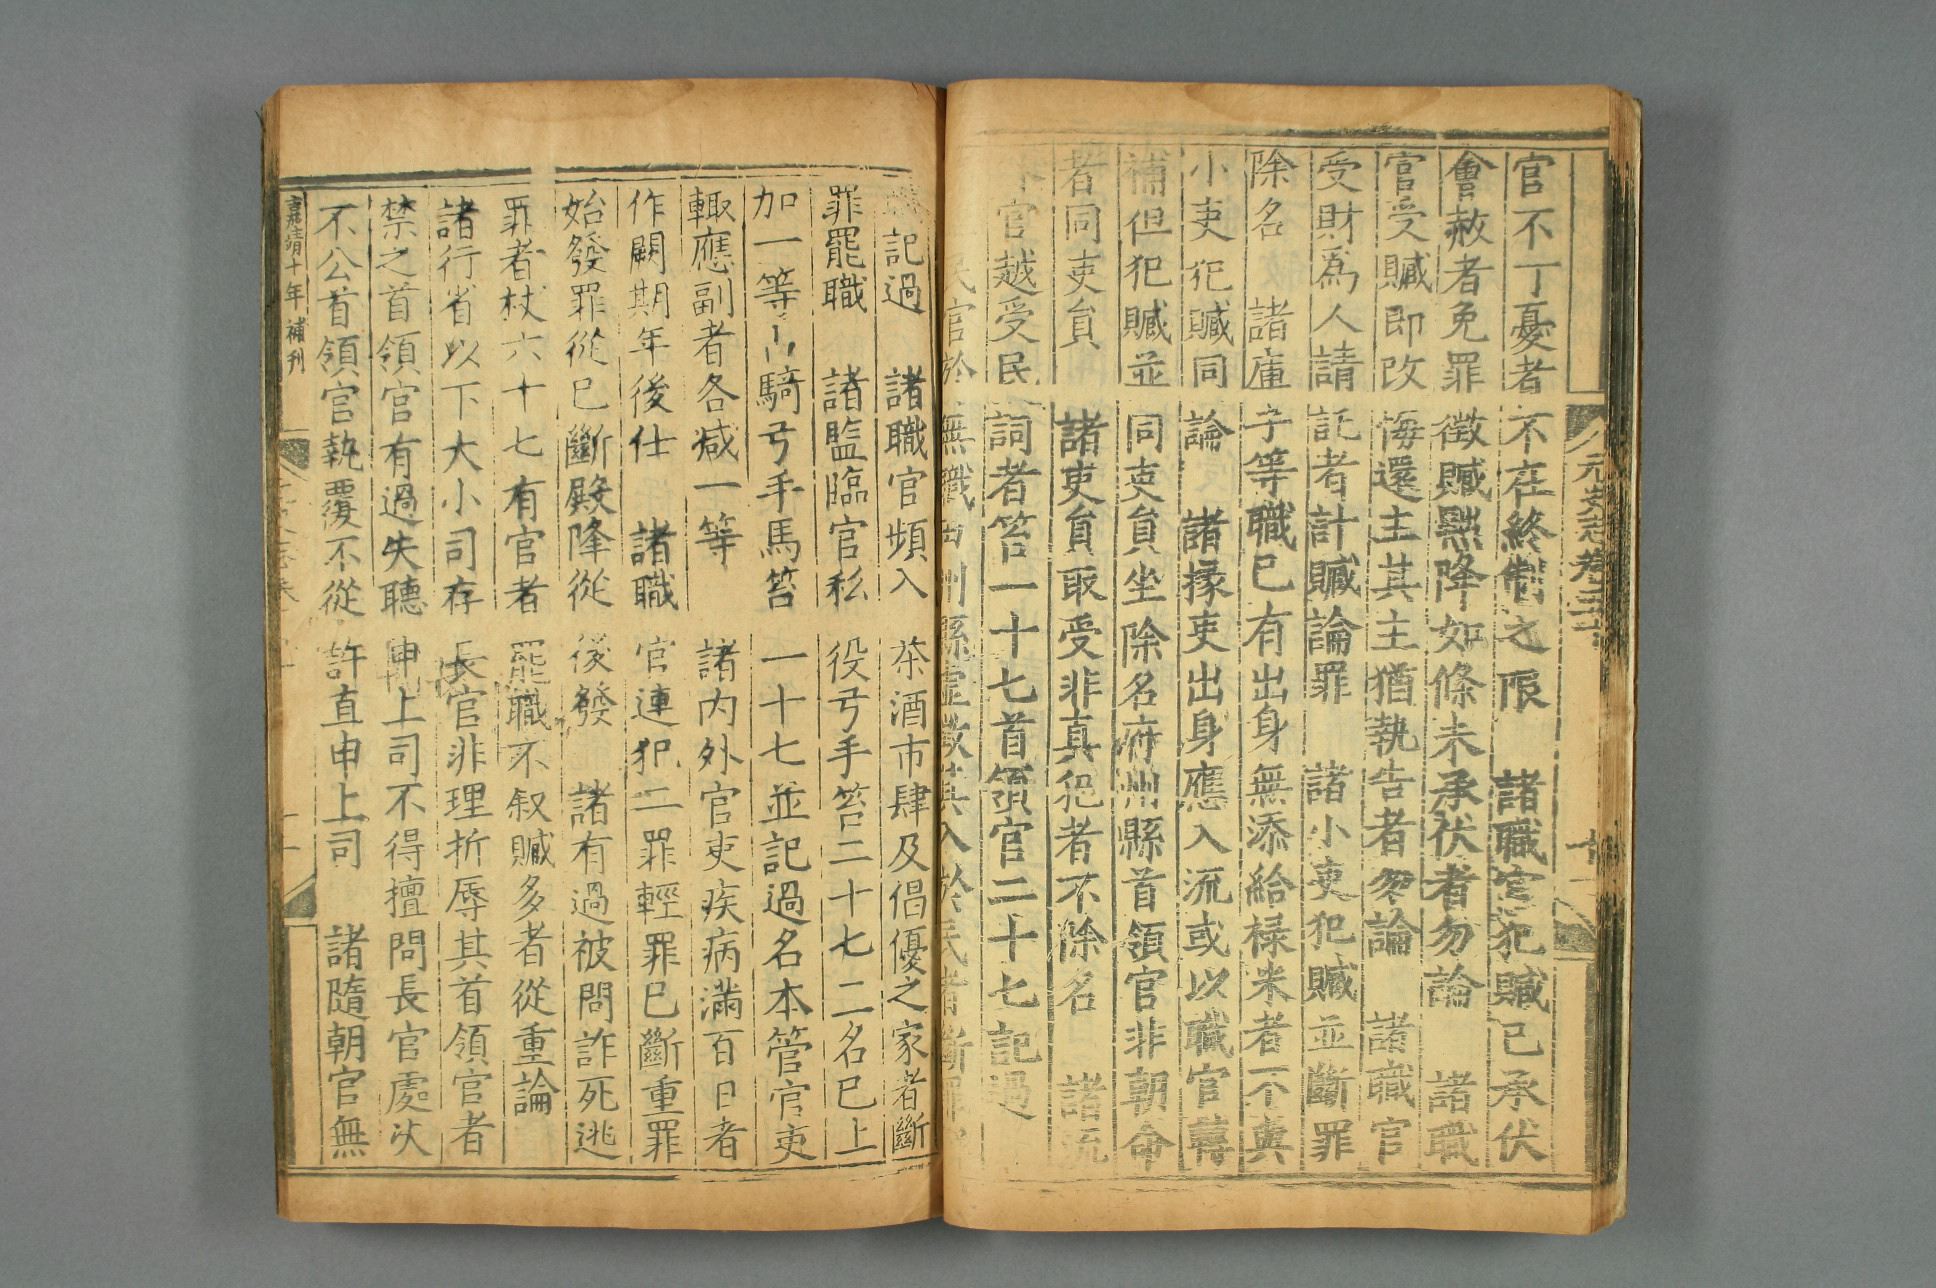 元史志卷五十
官不丁憂者不在終制之限　諸職官犯贓已承伏
會赦者免罪徵贓黜降如條未承伏者勿論　諸職
官受贓即改悔還主其主猶執告者勿論　諸職官
受財爲人請託者計贓論罪　諸小吏犯贓並斷罪
除名　諸庫子等職已有出身無添給祿米者不與
小吏犯贓同論　諸掾吏出身應入流或以職官轉
補但犯贓並同吏員坐除名府州縣首領官非朝命
者同吏員　諸吏員取受非真犯者不除名　諸流
官越受民詞者笞一十七首領官二十七記過
民官於無職田州縣虛徵其入於民者斷罪
記過　諸職官頻入茶酒市肆及倡優之家者斷
罪罷職　諸監臨官私役弓手笞二十七二名已上
加一等　騎弓手馬笞一十七並記過名本管官吏
輒應副者各減一等　諸內外官吏疾病滿百日者
作闕期年後仕　諸職官連犯二罪輕罪已斷重罪
始發罪從已斷殿降從後發　諸有過被問詐死逃
罪者杖六十七有官者罷職不叙贓多者從重論
諸行省以下大小司存長官非理折辱其首領官者
禁之首領官有過失聽申上司不得擅問長官處决
不公首領官執覆不從許直申上司　諸隨朝官無
嘉靖十年補刊